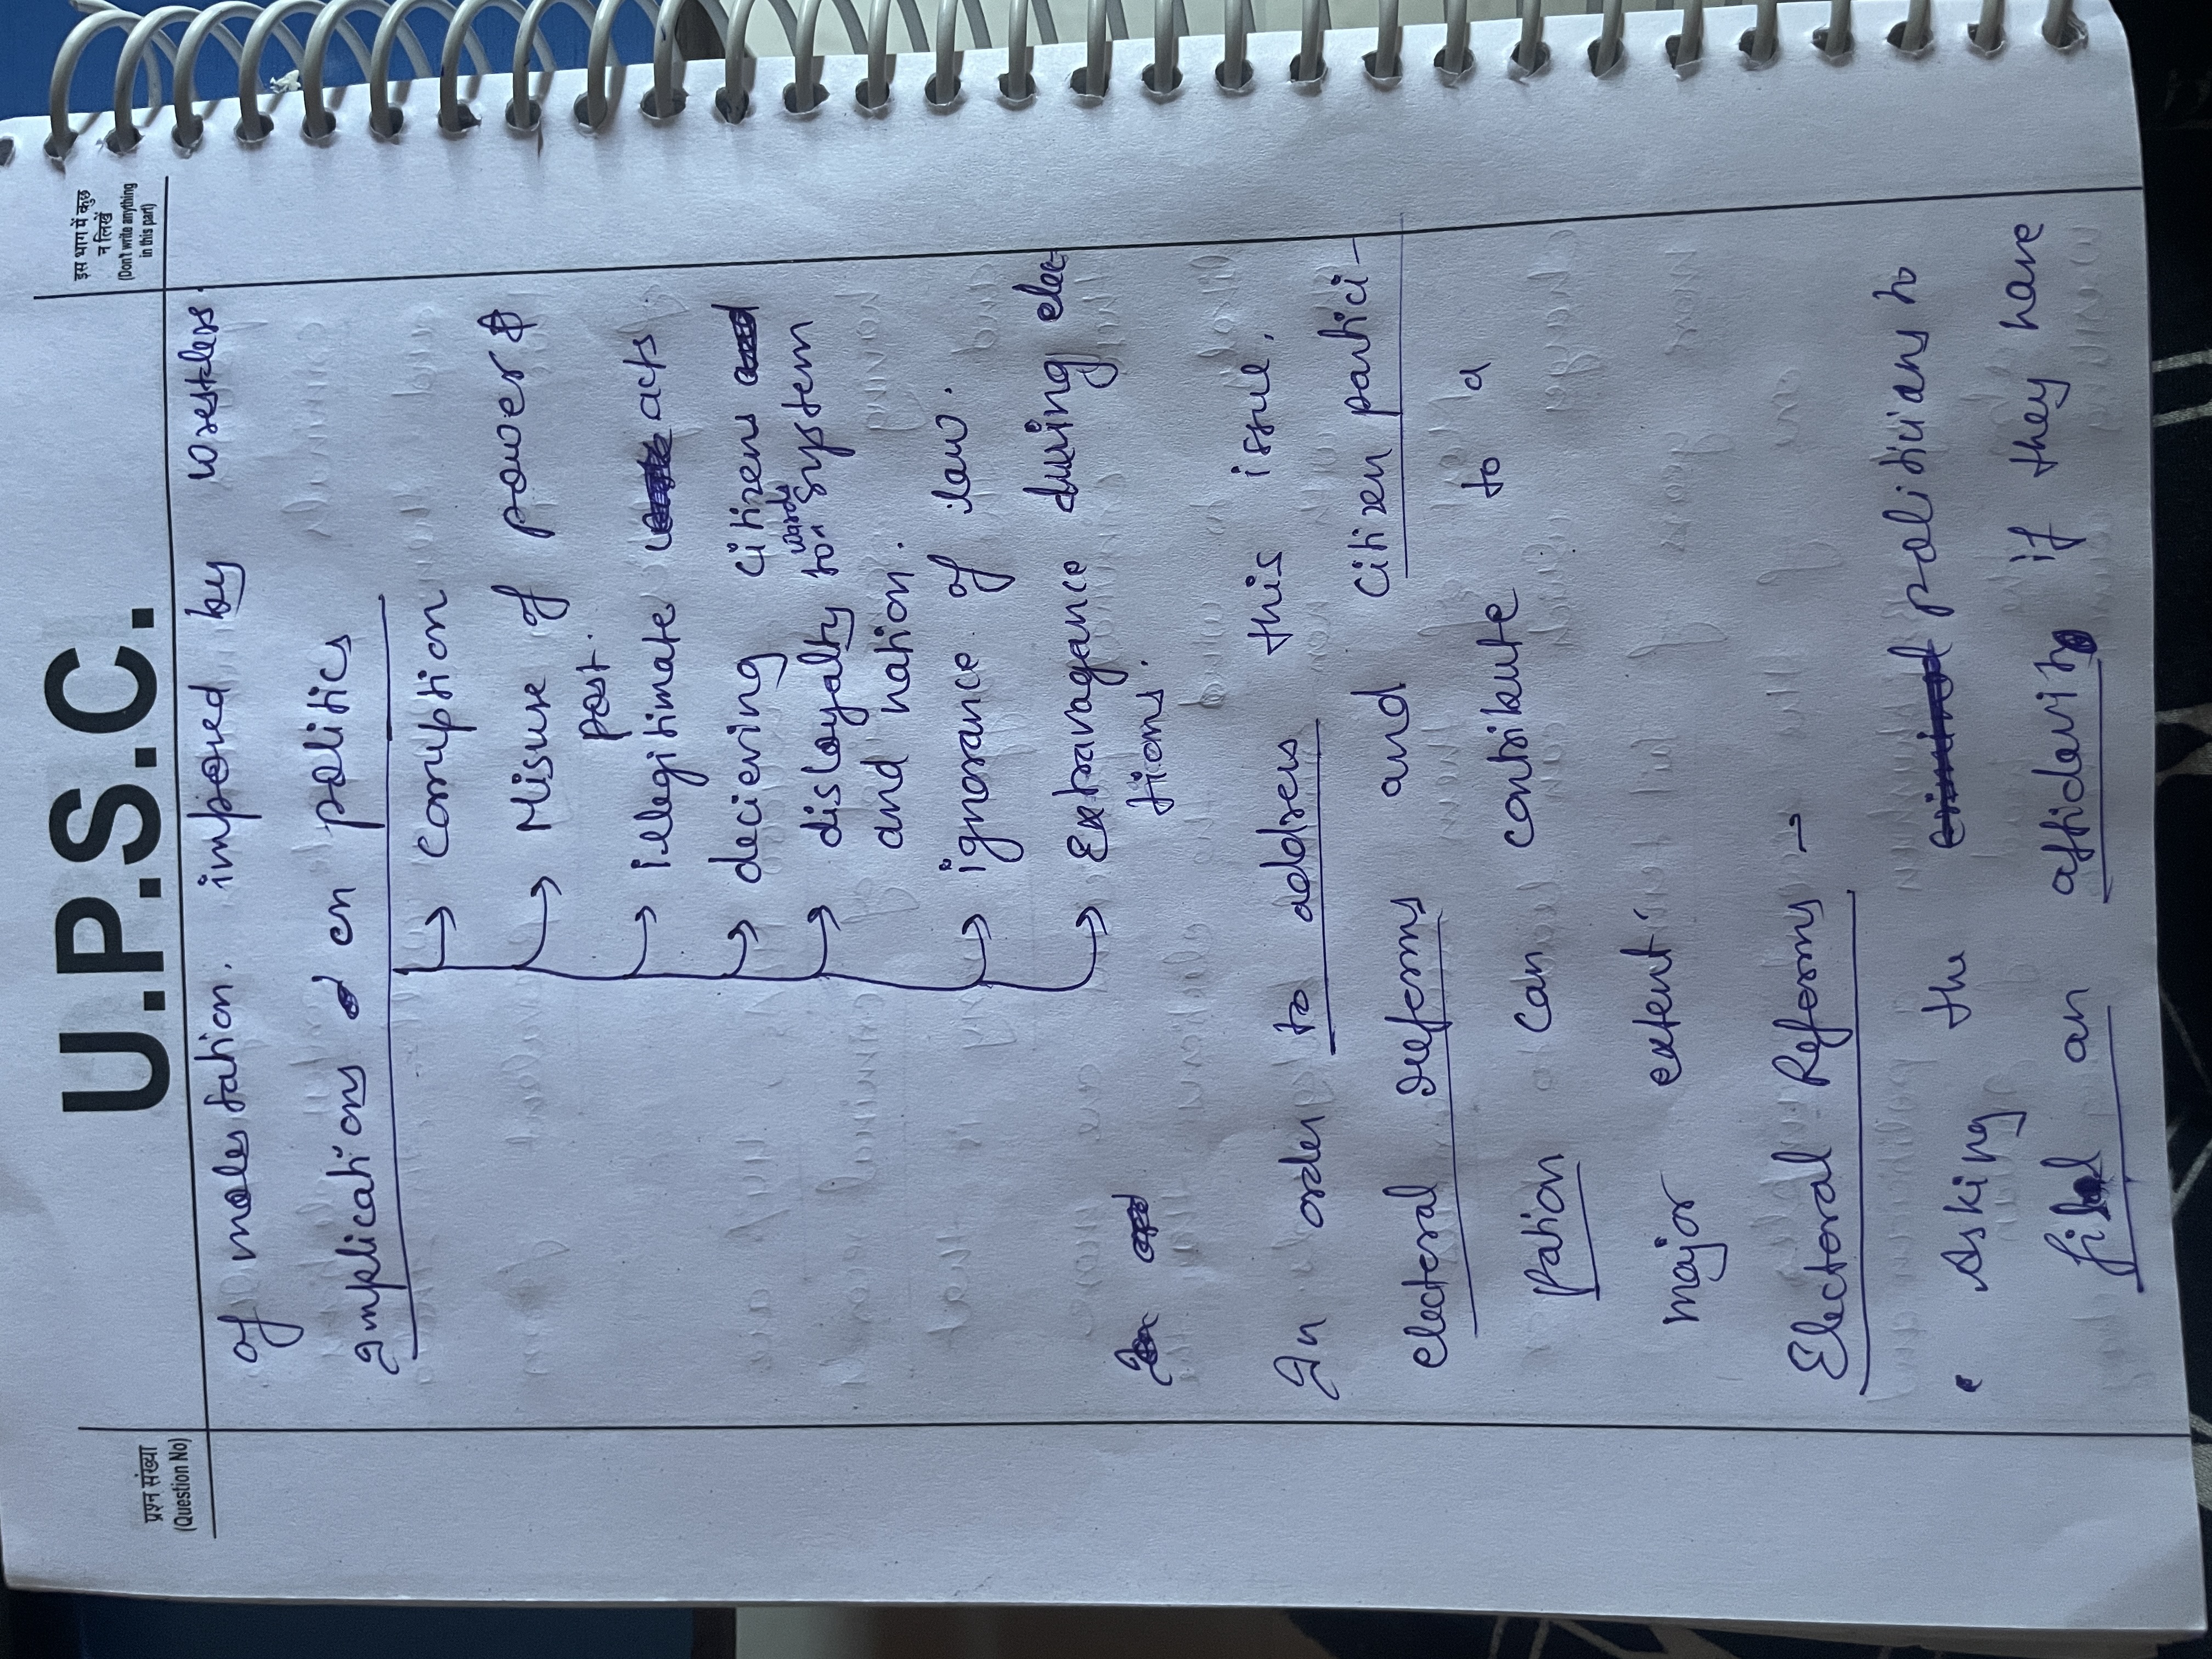 U.P.S.C.
प्रश्न संख्या
(Question No)
इस भाग में कुछ
न लिखें
(Don't write anything
in this part)
of molestation. imposed by wrestlers.
Implications on politics
→ corruption
→ Misuse of power &
post.
→ illegitimate acts
→ decieving citizens
→ disloyalty towards system
and nation.
→ ignorance of law.
→ Extravagance during elec-
tions.
In order to address this issue,
electoral reforms and citizen partici-
pation can contribute to a
major extent.
Electoral Reforms →
• Asking the politicians to
file an affidavit if they have